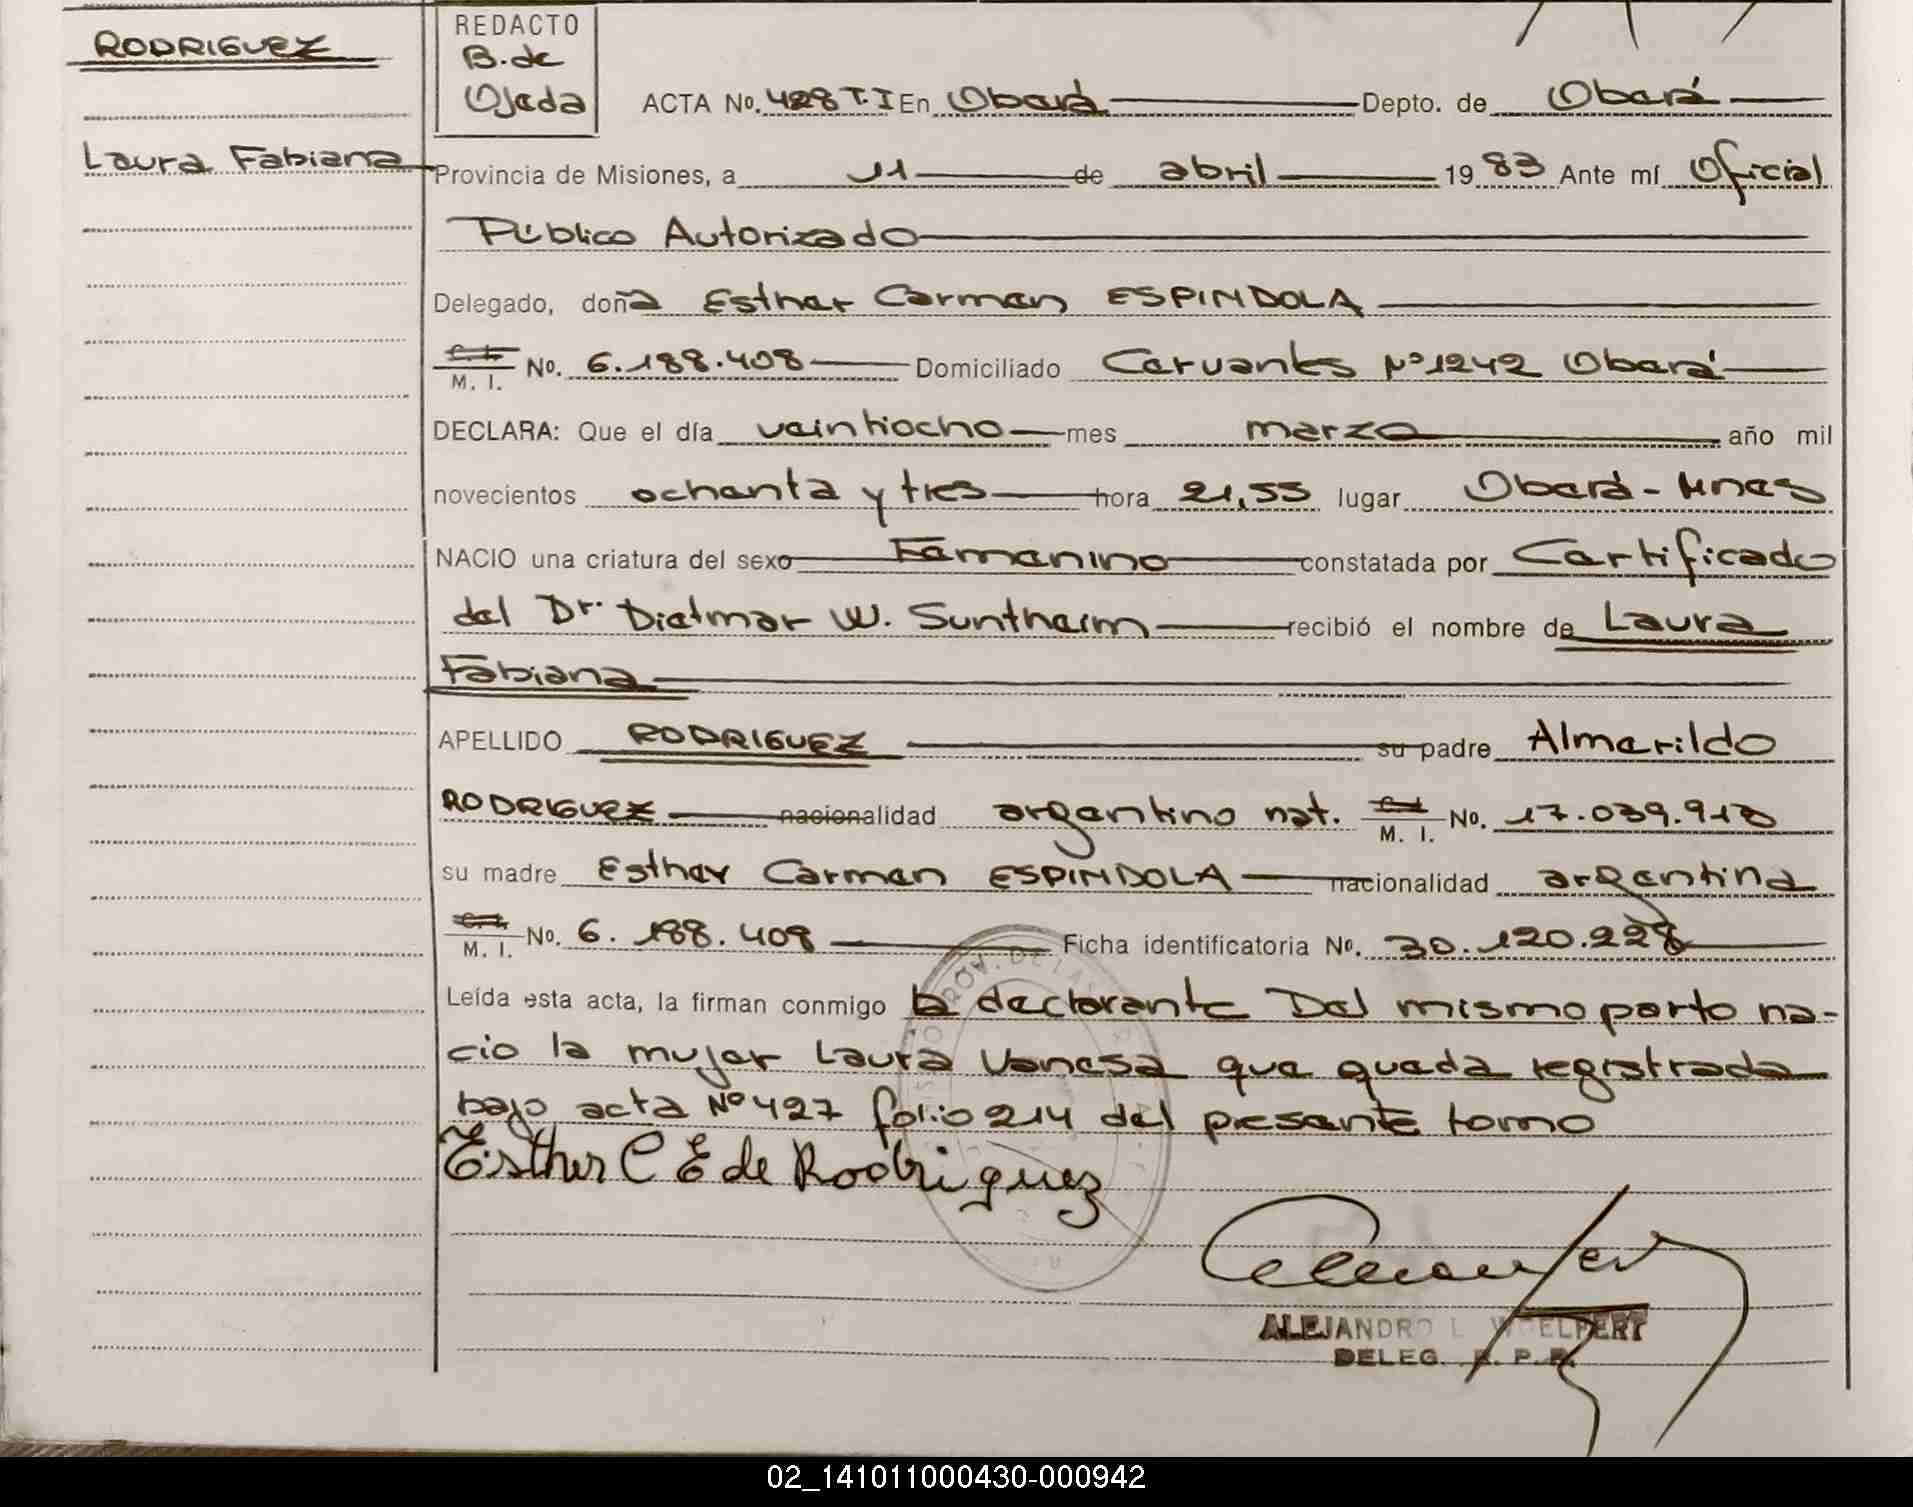 RODRIGUEZ
Laura Fabiana
REDACTO
B. de
Ojeda
ACTA No. 428 T.I En Oberá Depto. de Oberá
Provincia de Misiones, a 11 de abril 1983 Ante mí Oficial
Público Autorizado
Delegado, doña Esther Carmen ESPINDOLA
C. I.
M. I. No. 6.188.408 Domiciliado Cervantes Nº 1242 Oberá
DECLARA: Que el día veintiocho mes marzo año mil
novecientos ochenta y tres hora 21,55 lugar Oberá - Mnes
NACIO una criatura del sexo Femenino constatada por Certificado
del Dr. Dietmar W. Suntheim recibió el nombre de Laura
Fabiana
APELLIDO RODRIGUEZ su padre Almerildo
RODRIGUEZ nacionalidad argentino nat. C. I.
M. I. No. 17.039.918
su madre Esther Carmen ESPINDOLA nacionalidad argentina
C. I.
M. I. No. 6.188.408 Ficha identificatoria No. 30.120.228
Leída esta acta, la firman conmigo la declarante Del mismo parto na-
cio la mujer Laura Vanesa que queda registrada
bajo acta Nº 427 folio 214 del presente tomo
Esther C E de Rodriguez
ALEJANDRO L. WOELFERT
DELEG. R. P. P.
02_141011000430-000942